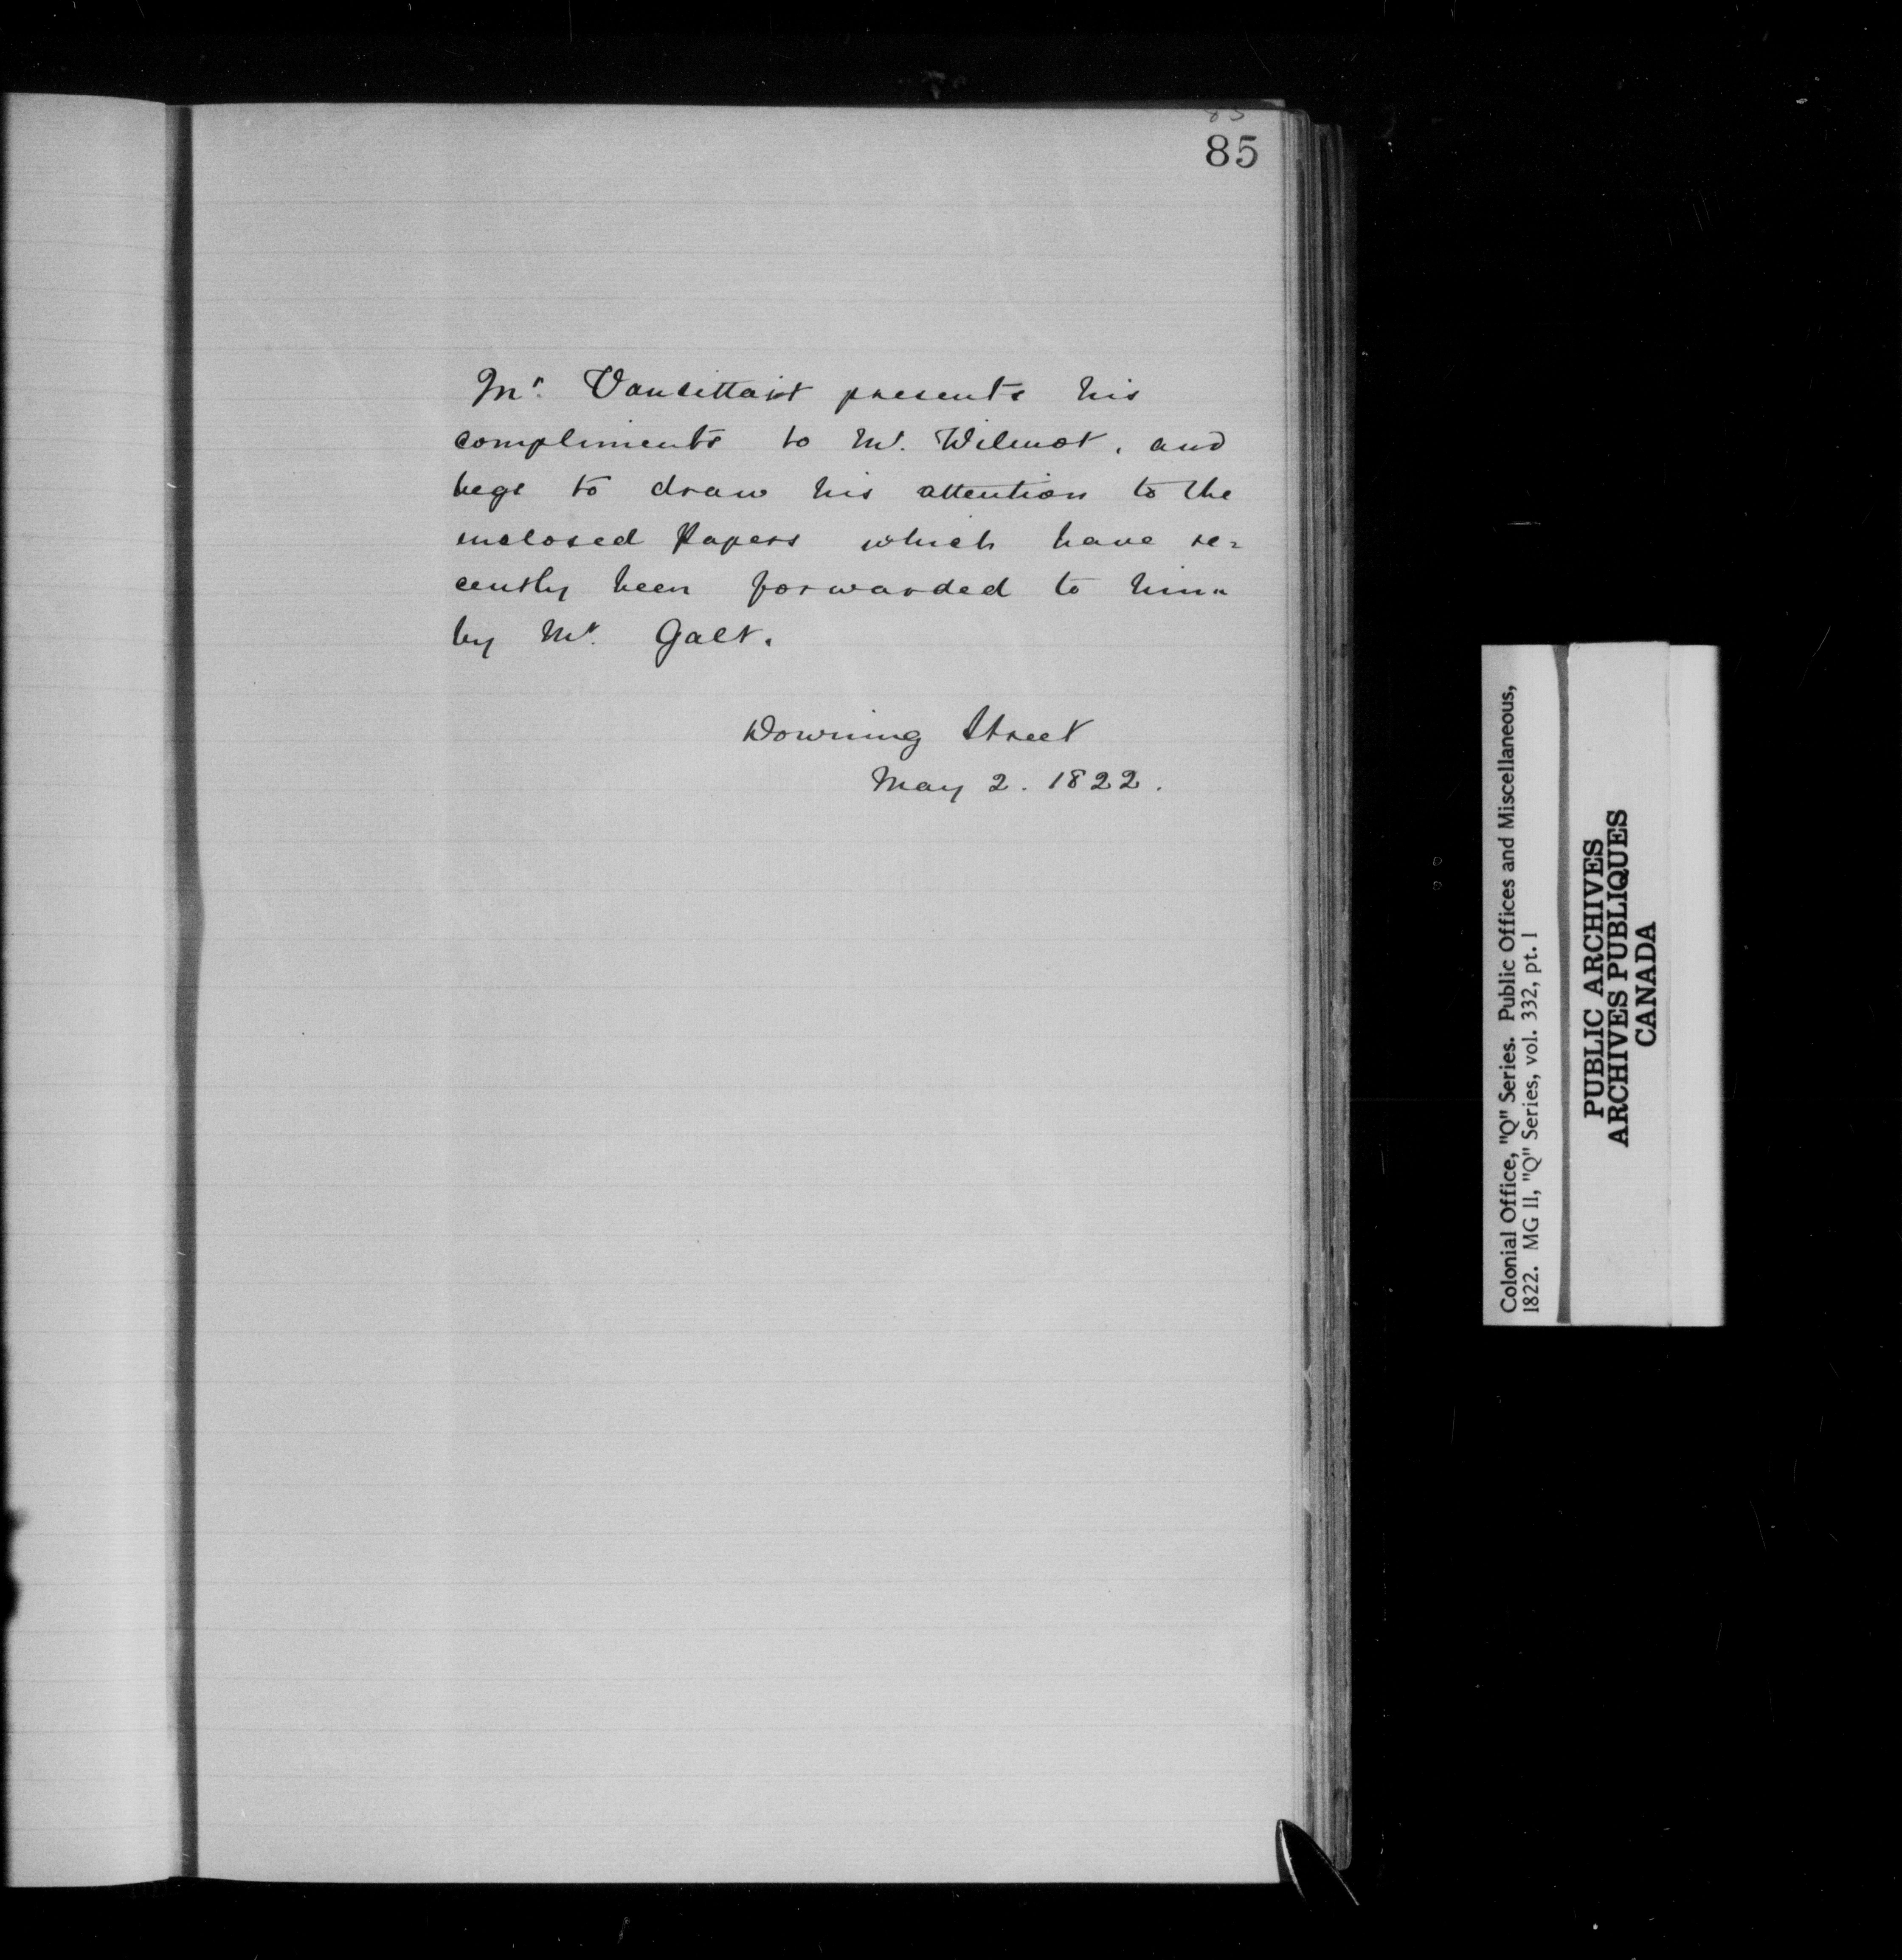 85
85
Mr. Vansittart presents his
compliments to Mr. Wilmot, and
begs to draw his attention to the
enclosed Papers which have re=
cently been forwarded to him
by Mr. Galt.
Downing Street
May 2. 1822.
Colonial Office, "Q" Series. Public Offices and Miscellaneous,
1822. MG 11, "Q" Series, vol. 332, pt. 1
PUBLIC ARCHIVES
ARCHIVES PUBLIQUES
CANADA